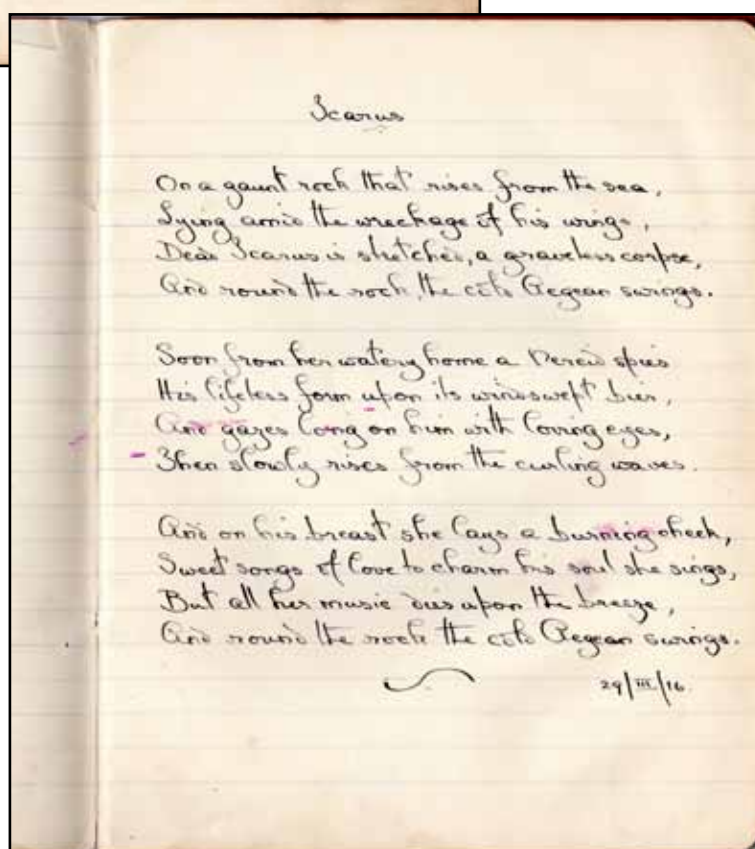 Icarus
On a gaunt rock that rises from the sea,
Lying amid the wreckage of his wings,
Dead Icarus is stretched, a graveless corpse,
And round the rock, the cold Aegean swings.
Soon from her watery home a Nereid spies
His lifeless form upon its windswept bier,
And gazes long on him with loving eyes,
Then slowly rises from the curling waves.
And on his breast she lays a burning cheek,
Sweet songs of love to charm his soul she sings,
But all her music dies upon the breeze,
And round the rock the cold Aegean swings.
29/III/16